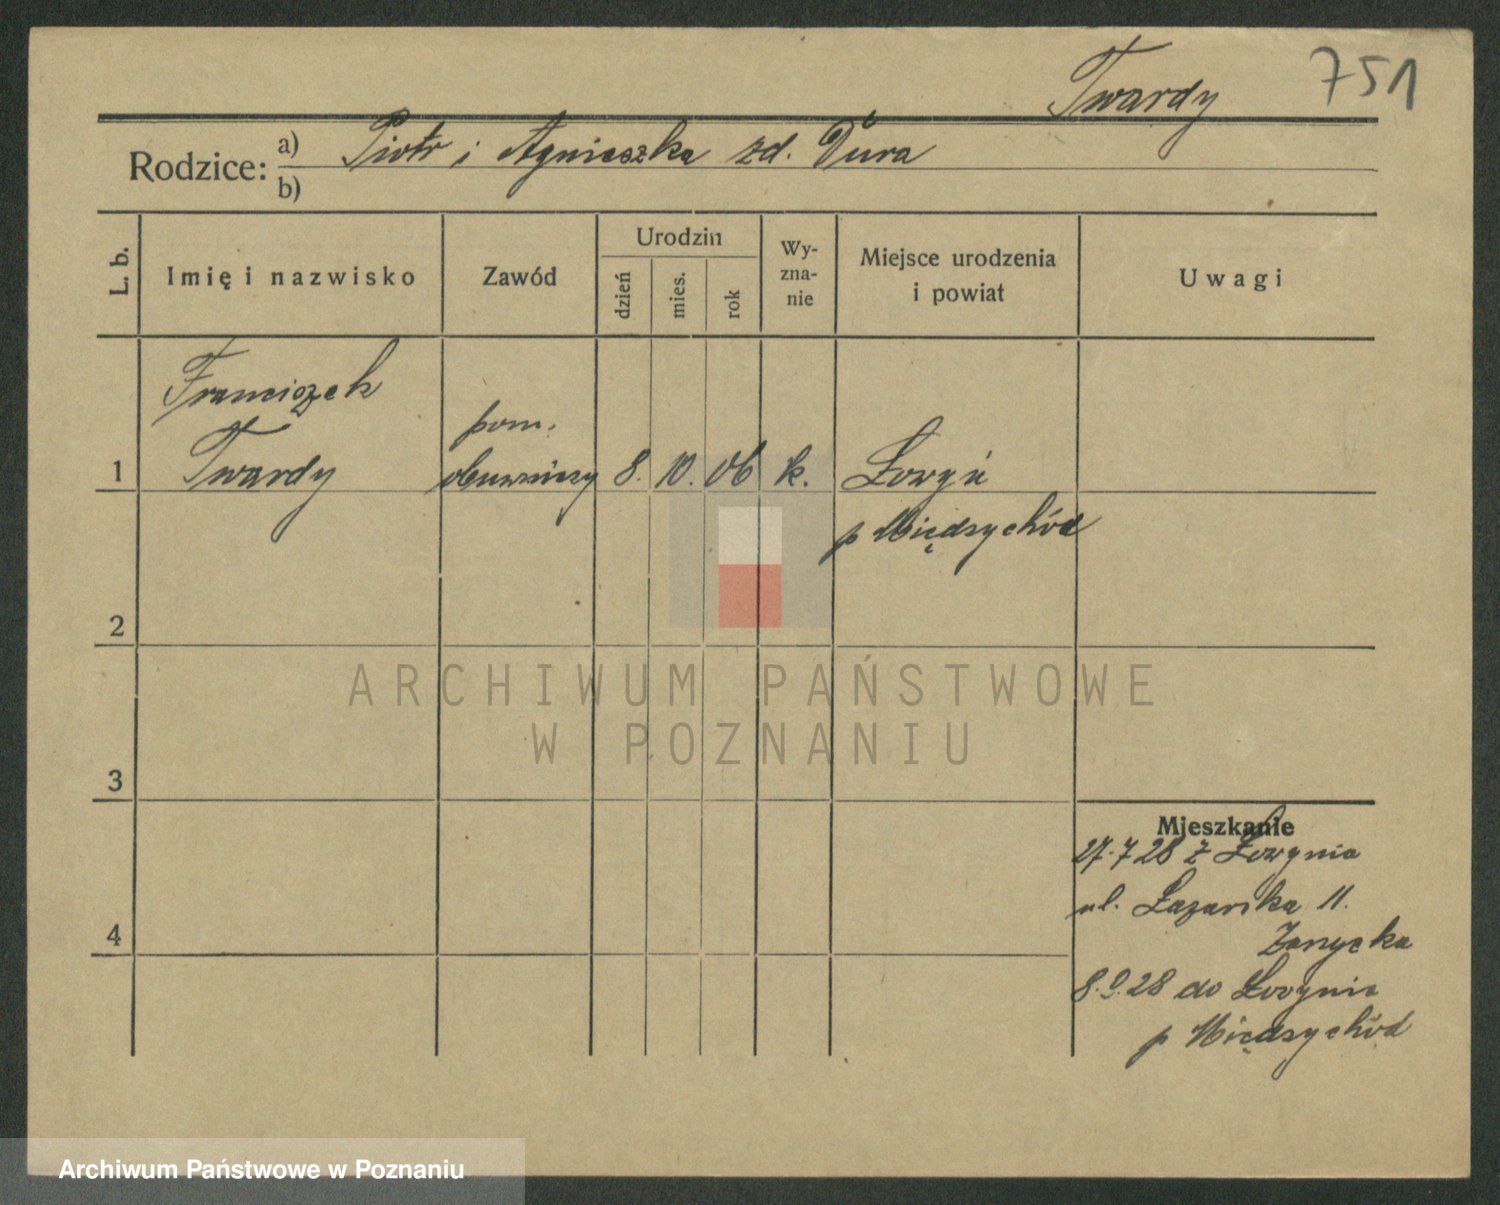 Twardy 751
Rodzice: a) Piotr i Agnieszka zd. Dura
b)
L. b. Imię i nazwisko Zawód Urodzin dzień mies. rok Wy-zna-nie Miejsce urodzenia i powiat Uwagi
Franciszek
pom.
1 Twardy obuwniczy 8. 10. 06 k. Łowyń
p Międzychód
2
ARCHIWUM PAŃSTWOWE
W POZNANIU
3
Mieszkanie
27.7 28 z Łowynia
ul. Łazarska 11.
4
8.9.28 do Łowynia
p Międzychód
Archiwum Państwowe w Poznaniu